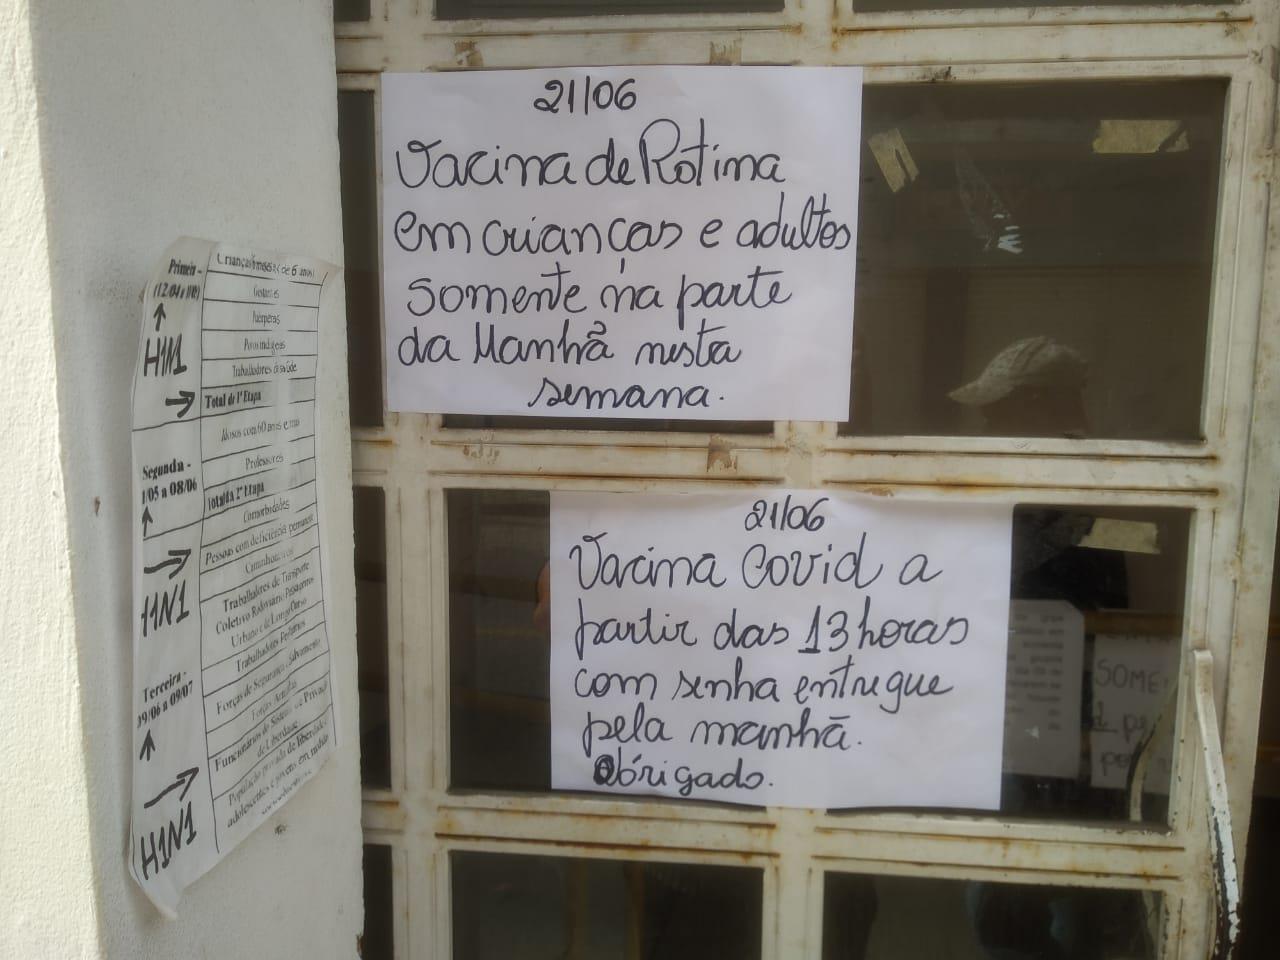 21/06
Vacina de Rotina
em crianças e adultos
somente na parte
da Manhã nesta
semana.
21/06
Vacina Covid a
partir das 13 horas
com senha entregue
pela manhã.
Obrigado.
Primeira -
H1N1
Crianças (de 6 anos)
Gestantes
Puérperas
Povos indígenas
Trabalhadores da saúde
Total da 1ª Etapa
Segunda -
1/05 a 08/06
H1N1
Idosos com 60 anos e mais
Professores
Total da 2ª Etapa
Terceira -
09/06 a 09/07
H1N1
Comorbidades
Pessoas com deficiência permanente
Caminhoneiros
Trabalhadores de Transporte
Coletivo Rodoviário Passageiros
Urbano e de Longo Curso
Trabalhadores Portuários
Forças de Segurança e Salvamento
Forças Armadas
Funcionários do Sistema de Privação
de Liberdade
População privada de liberdade e
adolescentes e jovens em medidas
SOME